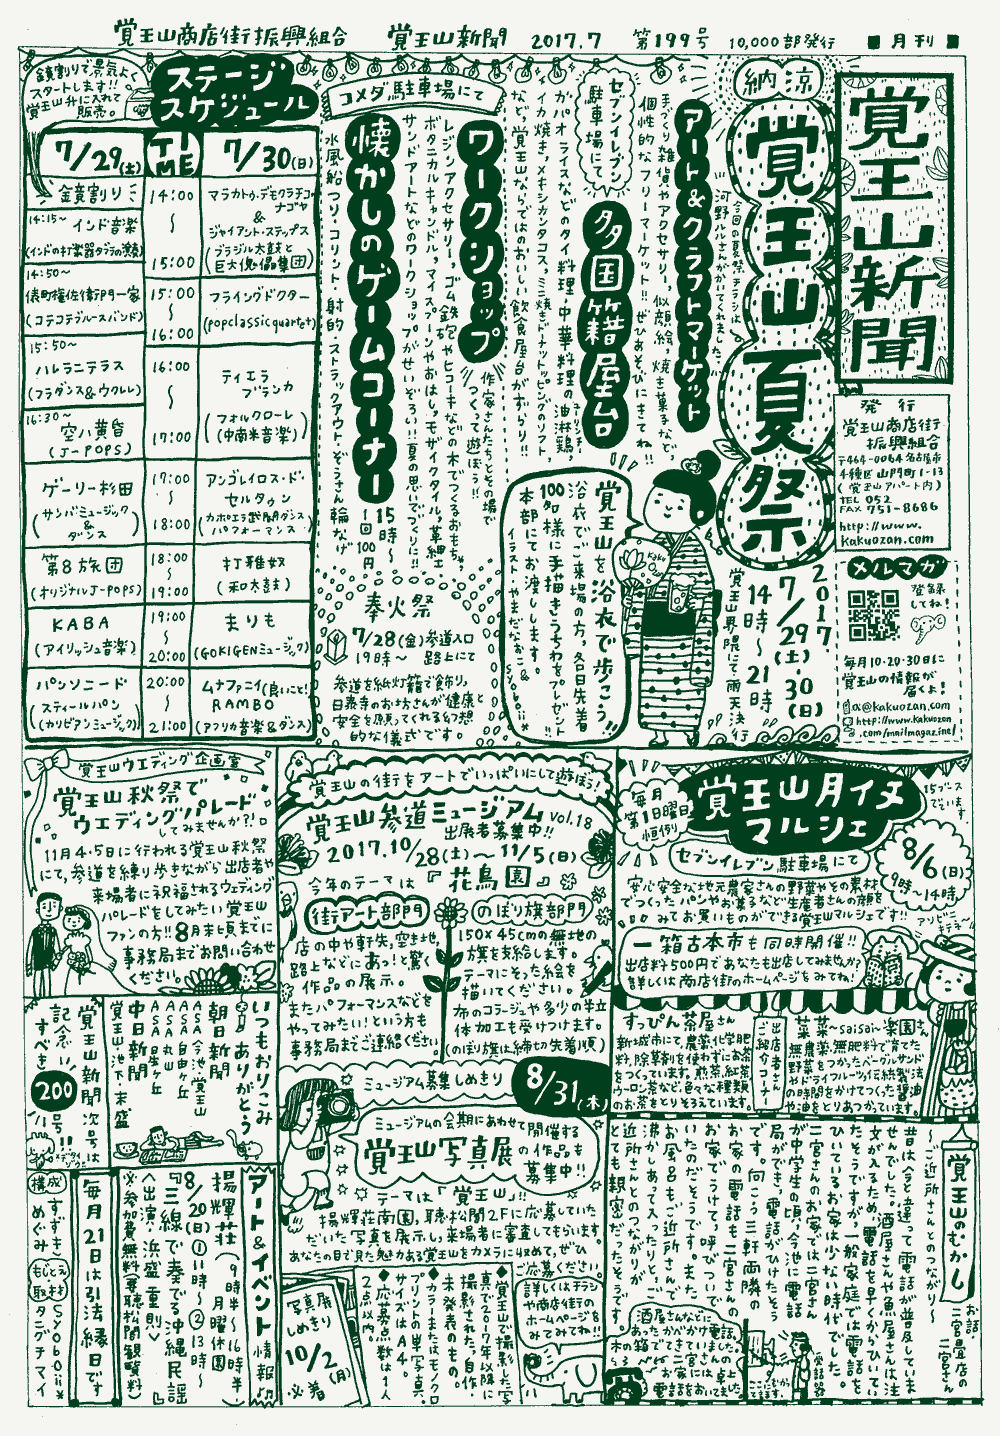 覚王山商店街振興組合 覚王山新聞 2017.7 第199号 10,000部発行 ■月刊■
覚王山新聞
発行
覚王山商店街
振興組合
〒464-0064名古屋市
千種区山門町1-13
(覚王山アパート内)
TEL 052
FAX 751-8686
http://www.
kakuozan.com
メルマガ
登録
してね!
毎月10・20・30日に
覚王山の情報が
届くよ!
a@kakuozan.com
http://www.kakuozan
.com/mailmagazine/
納涼
覚王山夏祭
今回の夏祭チラシは
河野ルルさんがかいてくれました
2017.
7/29(土)・30(日)
14時〜21時
覚王山界隈にて 雨天決行
アート&クラフトマーケット
手づくり雑貨やアクセサリー、似顔絵、焼き菓子など、
個性的なフリーマーケット!!ぜひあそびにきてね
セブンイレブン
駐車場にて
多国籍屋台
ガパオライスなどのタイ料理・中華料理の油淋鶏、
イカ焼き、メキシカンタコス、ミニ焼きドーナットッピングのソフト
など、覚王山ならではのおいしい飲食屋台がずらり!!
覚王山を浴衣で歩こう!!
浴衣でご来場の方、各日先着
100名様に手描きうちわをプレゼント
本部にてお渡しします。
イラストやまだなおこ&syoboii*
コメダ駐車場にて
ワークショップ
作家さんたちとその場で
つくって遊ぼう!!
レジンアクセサリー、ゴム鉄砲やヒコーキなどの木でつくるおもちゃ、
ボタニカルキャンドル、マイスプーンやおはし、モザイクタイル、革細工
サンドアートなどのワークショップがせいぞろい!!夏の思いでつくりに!!
懐かしのゲームコーナー
15時〜
1回100円
水風船つり・コリント・射的・ストラックアウト・ぞうさん輪なげ
奉火祭
7/28(金)参道入口
19時〜 路上にて
参道を紙灯籠で飾り、
日泰寺のお坊さんが健康と
安全を願ってくれる幻想
的な儀式です。
鏡割りで景気よく
スタートします!!
覚王山升に入れて
販売。
ステージ
スケジュール
7/29(土) TIME 7/30(日)
金鏡割り
14:15〜
インド音楽
(インドの打楽器タブラの演奏)
14:50〜
俵町権佐衛門一家
(コテコテブルースバンド)
15:50〜
ハレラニテラス
(フラダンス&ウクレレ)
16:30〜
空ハ黄昏
(J-POPS)
ゲーリー杉田
(サンバミュージック
&
ダンス)
第8旅団
(オリジナルJ-POPS)
KABA
(アイリッシュ音楽)
パンソニード
(スティールパン
カリビアンミュージック)
14:00〜15:00
15:00〜16:00
16:00〜17:00
17:00〜18:00
18:00〜19:00
19:00〜20:00
20:00〜21:00
マラカトゥ・デモクラチコ・
ナゴヤ
&
ジャイアント・ステップス
(ブラジル太鼓と
巨大傀儡集団)
フライングドクター
(popclassicquartet)
ティエラ
ブランカ
(フォルクローレ
中南米音楽)
アンゴイロス・ド・
セルタゥン
(カポエラ武闘ダンス
パフォーマンス)
打雅奴
(和太鼓)
まりも
(GOKIGENミュージック)
ムナファニイ(良いこと!)
RAMBO
(アフリカ音楽&ダンス)
覚王山ウエディング企画室
覚王山秋祭で
ウエディングパレード
してみませんか?!
11月4・5日に行われる覚王山秋祭
にて、参道を練り歩きながら出店者や
来場者に祝福されるウェディング
パレードをしてみたい覚王山
ファンの方!!8月末頃までに
事務局までお問い合わせ
ください。
覚王山の街をアートでいっぱいにして遊ぼう!
覚王山参道ミュージアム vol.18
出展者募集中!!
2017.10/28(土)〜11/5(日)
今年のテーマは『花鳥園』
街アート部門
店の中や軒先、空き地、
路上などにあっ!と驚く
作品の展示。
またパフォーマンスなどを
やってみたい!という方も
事務局までご連絡ください
のぼり旗部門
150×45cmの無地の
旗を支給します。
テーマにそった絵を
描いてください。
布のコラージュや多少の半立
体加工も受けつけます。
(のぼり旗は締切先着順)
ミュージアム募集しめきり 8/31(木)
ミュージアムの会期にあわせて開催する
覚王山写真展の作品も
募集中!!
テーマは「覚王山」!!
揚輝荘南園、聴松閣2Fに応募していた
だいた写真を展示し、来場者に審査してもらいます。
あなたの目で見た魅力ある覚王山をカメラに収めて、ぜひ
ご応募ください。
◆覚王山で撮影した写真で2017年以降に撮影された、自作・未発表のもの。
◆カラーまたはモノクロプリントの単写真、サイズはA4。
◆応募点数は1人2点以内。
詳しくはチラシ
や商店街の
ホームページを
みてみてね!!
写真展
しめきり
10/2(月)
必着
毎月
第1日曜日
恒例
覚王山月イチ
マルシェ
15ブース
でています。
セブンイレブン駐車場にて
8/6(日)
9時〜14時
アソビニ
キテネ
安心安全な地元農家さんの野菜やその素材
でつくったパンやお菓子など生産者さんの顔を
みてお買いものができる覚王山マルシェです!!
一箱古本市も同時開催!!
出店料500円であなたも出店してみませんか?
詳しくは商店街のホームページをみてね!
出店者さん
ご紹介コーナー
菜菜〜saisai〜楽園さん
無農薬、無肥料で育てた
野菜をつかったベーグルサンド
やドライフルーツ、伝統製法
の時間をかけてつくった醤油
や油をとりあつかっています。
すっぴん茶屋さん
新城市にて、農薬、化学肥
料、除草剤を使わずにお茶
をつくっています。煎茶、紅茶、
ウーロン茶など、色々な種類
のお茶をとりそろえています。
覚王山のむかし
お話 二宮畳店の
二宮さん
〜ご近所さんとのつながり〜
昔は今と違って電話が普及していま
せんでした。酒屋さんや魚屋さんは注
文が入るため、電話を早くからひいてい
たそうですが、一般家庭では電話を
ひいているお家は少ない時代でした。
二宮さんのお家では二宮さん
が中学生の頃、今池に電話
局ができ、電話がひけたそう
です。向こう三軒両隣の
お家の電話も二宮さんの
お家でうけて、呼びついで
いたのだそうです。また、
お風呂もご近所さんで
沸かしあって入ったりと、ご
近所さんとのつながりが、
とても親密だったそうです。
酒屋さんなどに
あった電話。卓上
いつもおりこみ
ありがとう
朝日新聞
ASA今池・覚王山
ASA自由ヶ丘
ASA日泰ヶ丘
中日新聞
覚王山・池下・末盛
覚王山新聞 次号は
記念すべき200号!!
アート&イベント情報
揚輝荘(9時半〜16時半 月曜休園)
8/20(日)①11時〜②13時〜
『三線で奏でる沖縄民謡』
〈出演・浜盛重則〉
※参加費無料(要聴松閣観覧料)
毎月21日は引法縁日です
構成 すずきめぐみ
もじとえ syoboii*
取材 タニグチマイ